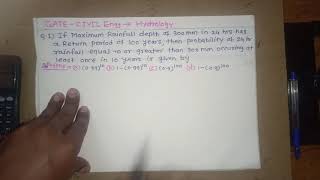 GATE - CIVIL Engg → Hydrology
Q.1) If Maximum Rainfall depth of 300mm in 24 hrs has
a Return period of 100 years, then probability of 24 hr
rainfall equal to or greater than 300mm occuring at
least once in 10 years is given by
(a) (0.99)^10 (b) 1-(0.99)^10 (c) (0.9)^100 (d) 1-(0.9)^100